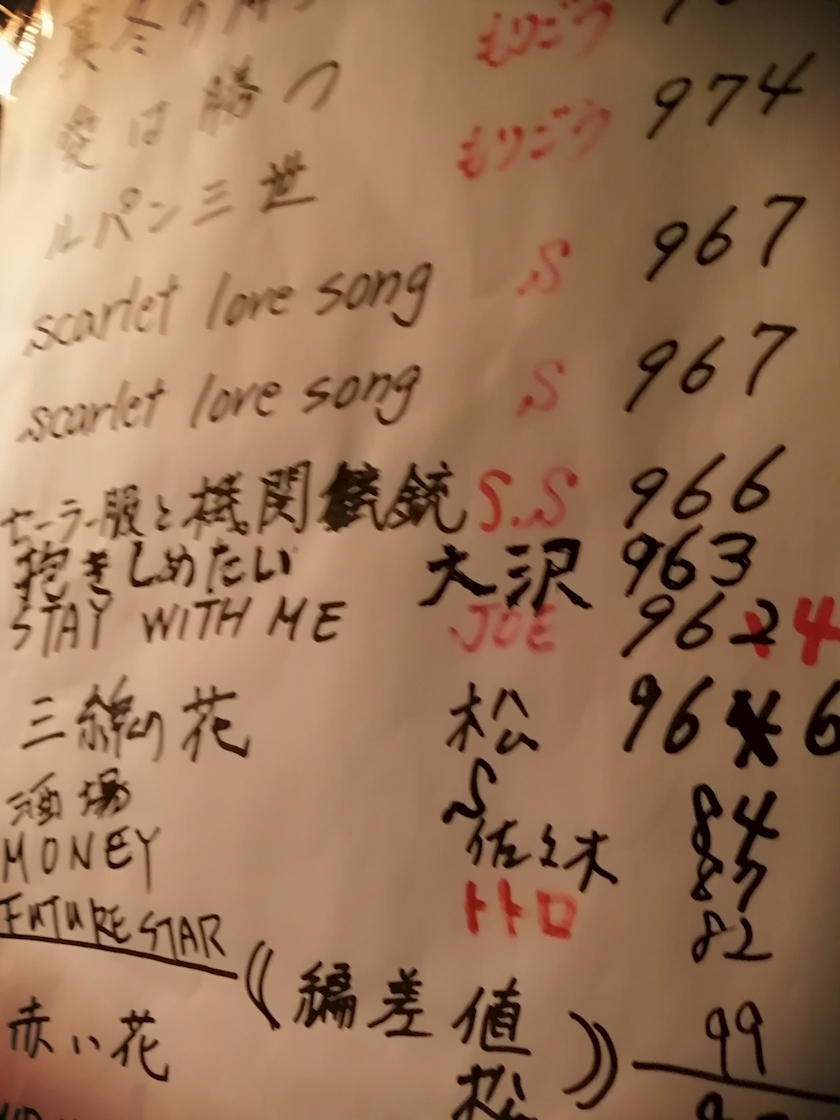 もりごう
愛は勝つ もりごう 974
ルパン三世
scarlet love song S 967
scarlet love song S 967
セーラー服と機関銃 S.S 966
抱きしめたい 大沢 963
STAY WITH ME JOE 962 4
三線の花 松 96 6
酒場 S 84
MONEY 佐々木 87
FUTURE STAR トトロ 82
((編差値)) 99
赤い花 松